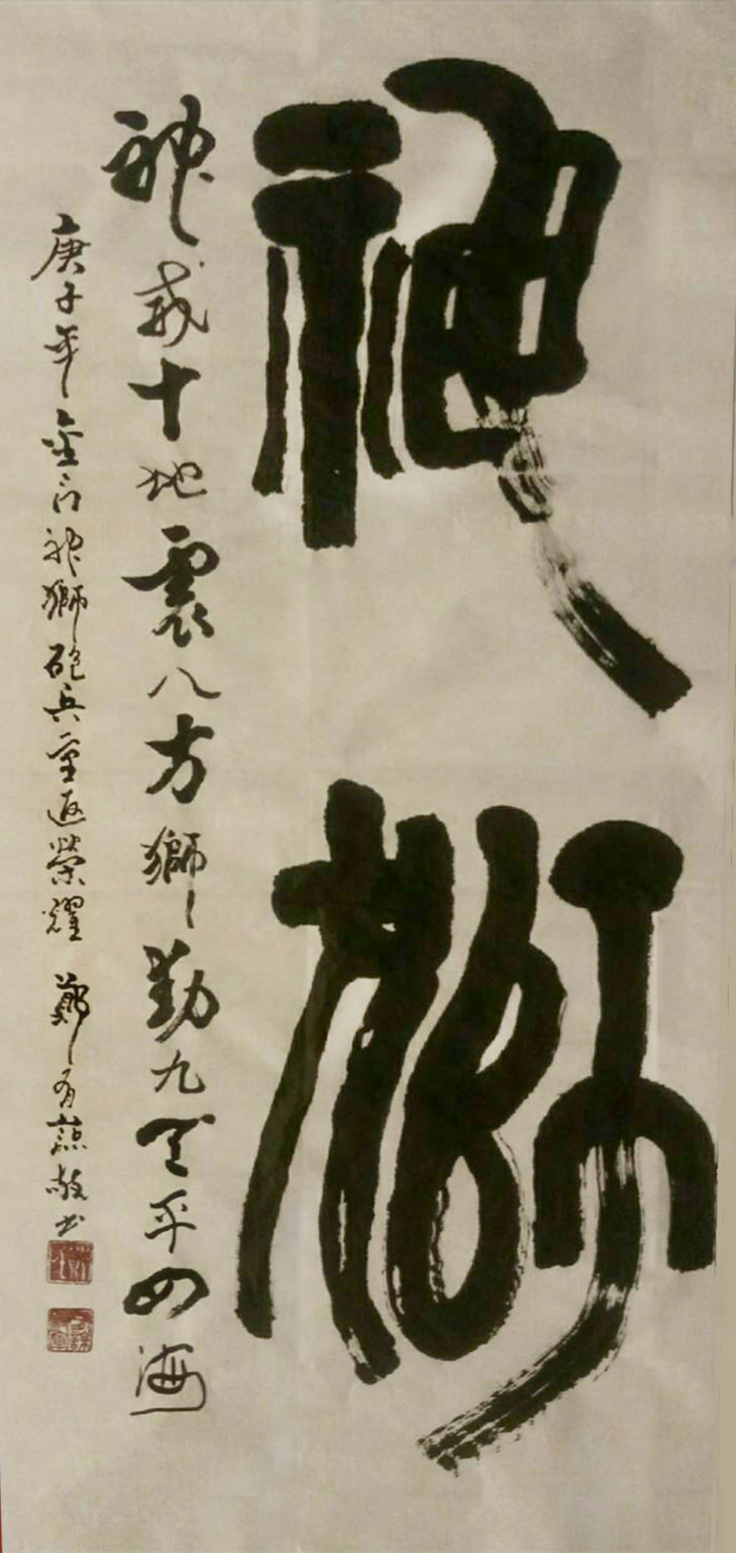 神獅
神威十地震八方獅勁九天平四海
庚子年金門神獅砲兵重返榮耀 鄭有諒敬书